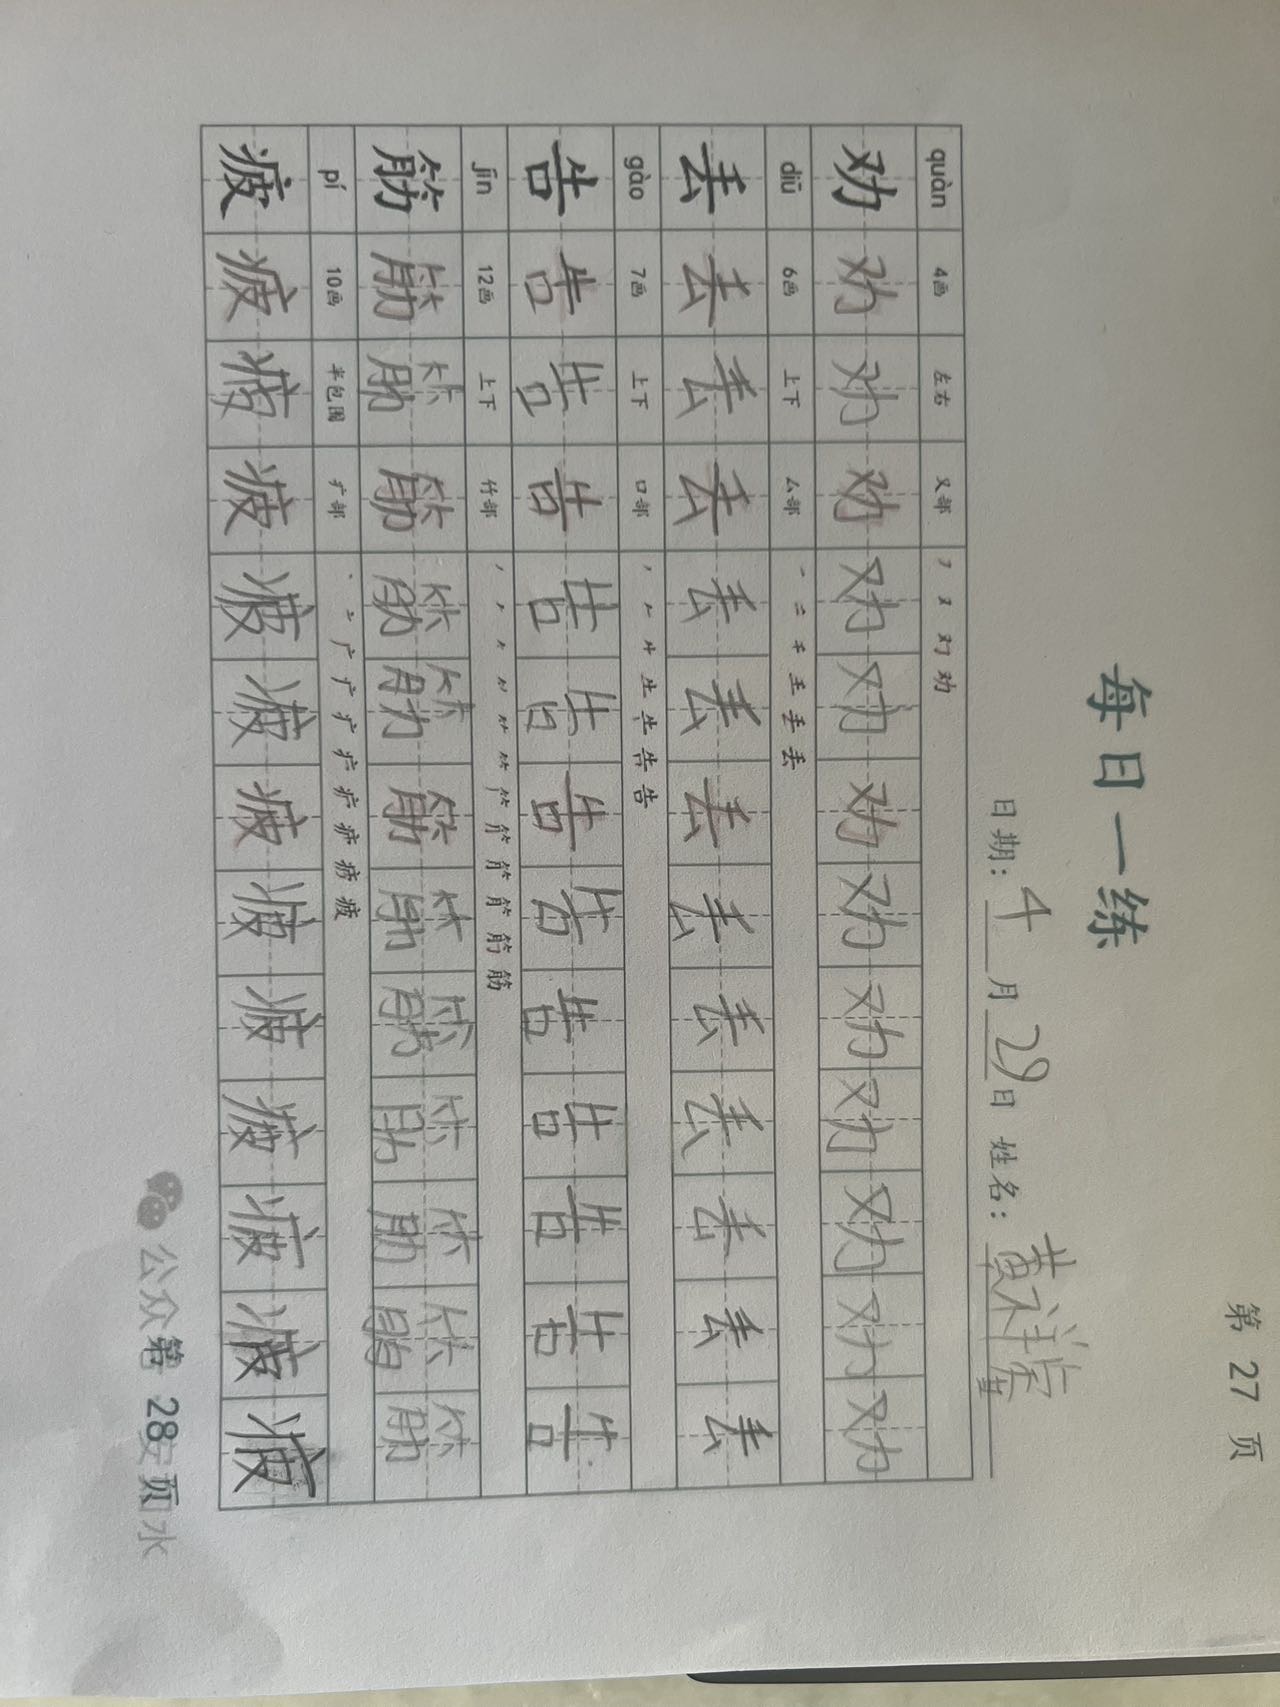 第 27 页
每日一练
日期：4月29日 姓名：黄祥
quàn 4画 左右 又部 フ 又 劝 劝
劝 劝 劝 劝 劝 劝 劝 劝 劝 劝 劝 劝 劝
diū 6画 上下 厶部 一 二 千 壬 丢 丢
丢 丢 丢 丢 丢 丢 丢 丢 丢 丢 丢 丢 丢
gào 7画 上下 口部 丿 𠂉 牛 生 告 告 告
告 告 告 告 告 告 告 告 告 告 告 告 告
jīn 12画 上下 竹部 筋 筋
筋 筋 筋 筋 筋 筋 筋 筋 筋 筋 筋 筋 筋
pí 10画 半包围 疒部 丶 亠 广 疒 疒 疲 疲
疲 疲 疲 疲 疲 疲 疲 疲 疲 疲 疲 疲 疲
公众 第 28 页 水